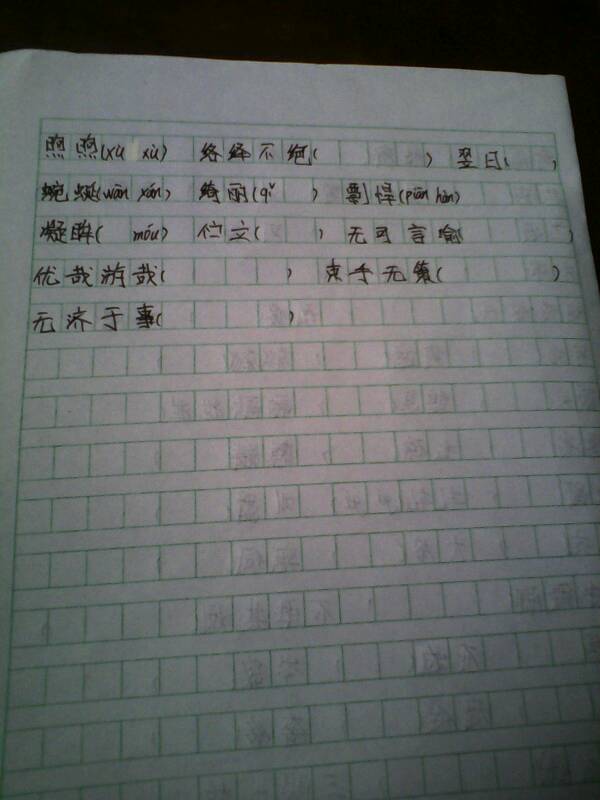 煦煦(xù xù) 络绎不绝( ) 翌日( )
蜿蜒(wān yán) 绮丽(qǐ ) 剽悍(piān hàn)
凝眸( móu) 伫立( ) 无可言喻( )
优哉游哉( ) 束手无策( )
无济于事( )